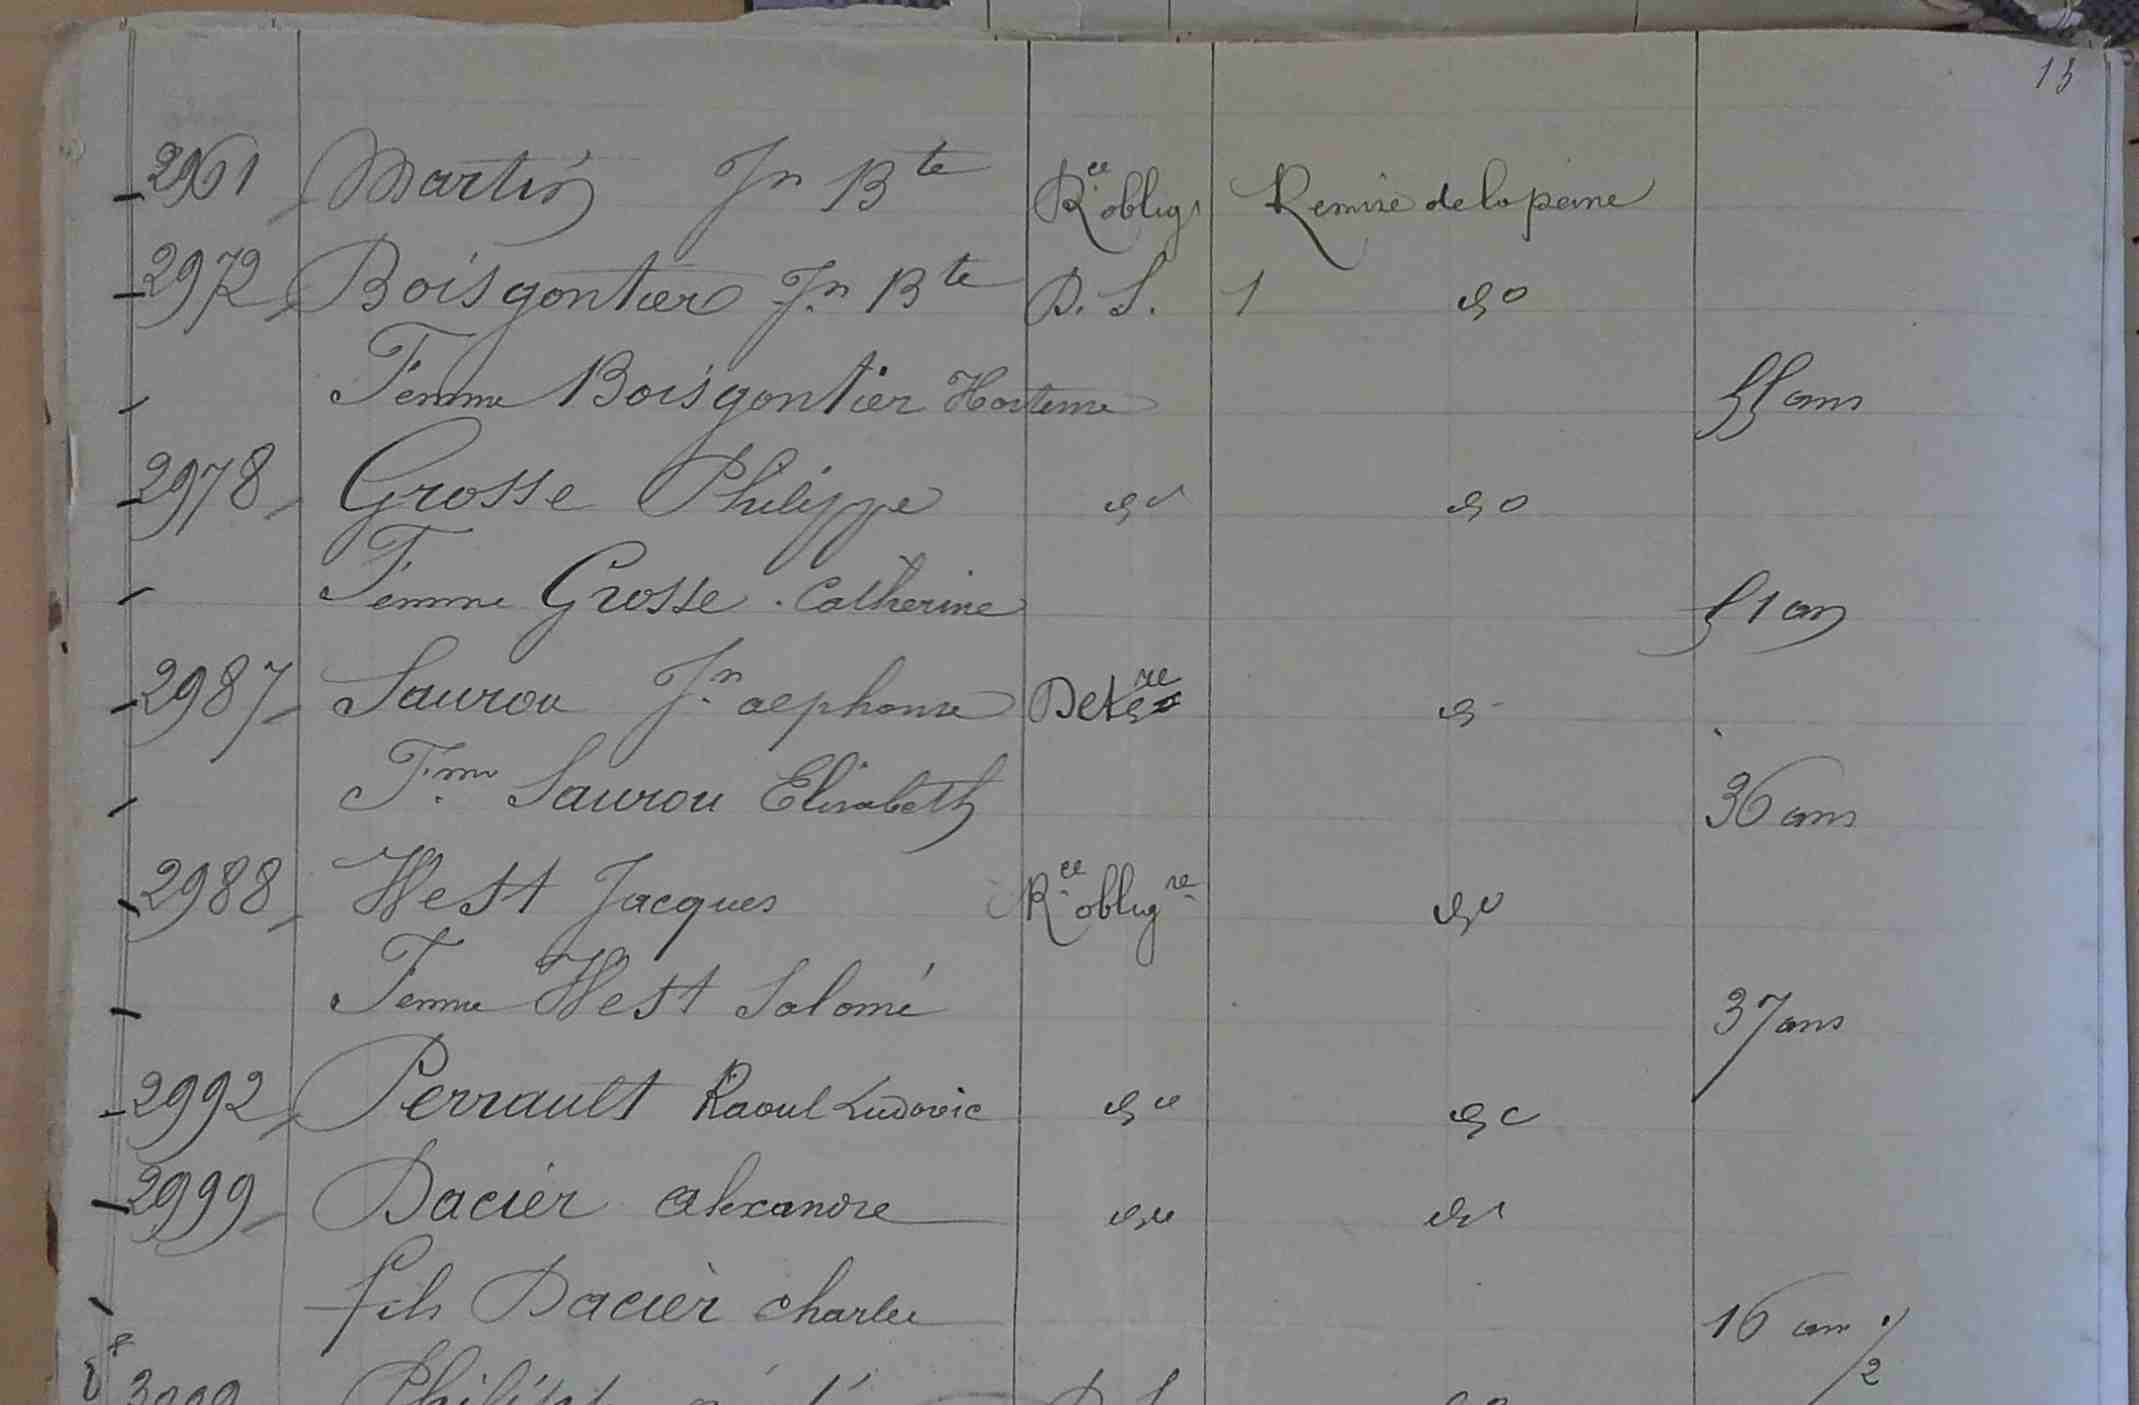 13
2961 Martin Jn Bte Rce oblig Remise de la peine
2972 Boisgontier Jn Bte D. S. 1 do
Femme Boisgontier Hortense 55 ans
2978 Grosse Philippe do do
Femme Grosse. Catherine 51 an
2987 Saurou Jn alphonse Detre do
Fme Saurou Elisabeth 36 ans
2988 West Jacques Rce obligre do
Femme West Salomé 37 ans
2992 Perrault Raoul Ludovic do do
2999 Dacier alexandre do do
fils Dacier Charles 16 ans 1/2
D. S.